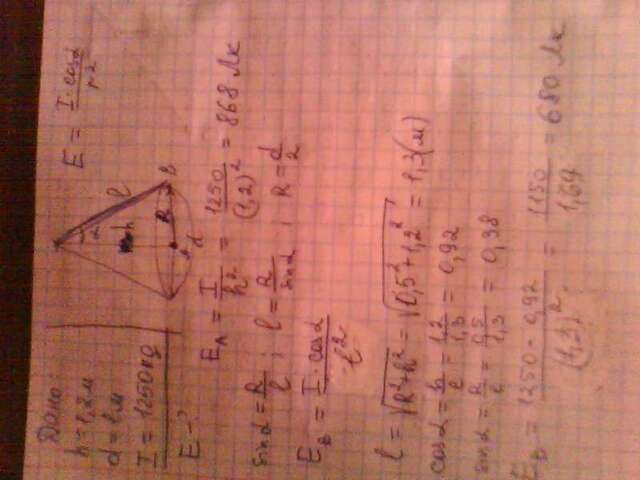 Дано:
h = 1,2 м
d = 1 м
I = 1250 кд
E - ?
α
l
h
R
A
B
d
E = I · cosα / r²
E_A = I / h² = 1250 / (1,2)² = 868 Лк
sinα = R / l ; l = R / sinα ; R = d / 2
E_B = I · cosα / l²
l = √(R² + h²) = √(0,5² + 1,2²) = 1,3 (м)
cosα = h / l = 1,2 / 1,3 = 0,92
sinα = R / l = 0,5 / 1,3 = 0,38
E_B = 1250 · 0,92 / (1,3)² = 1150 / 1,69 = 680 Лк